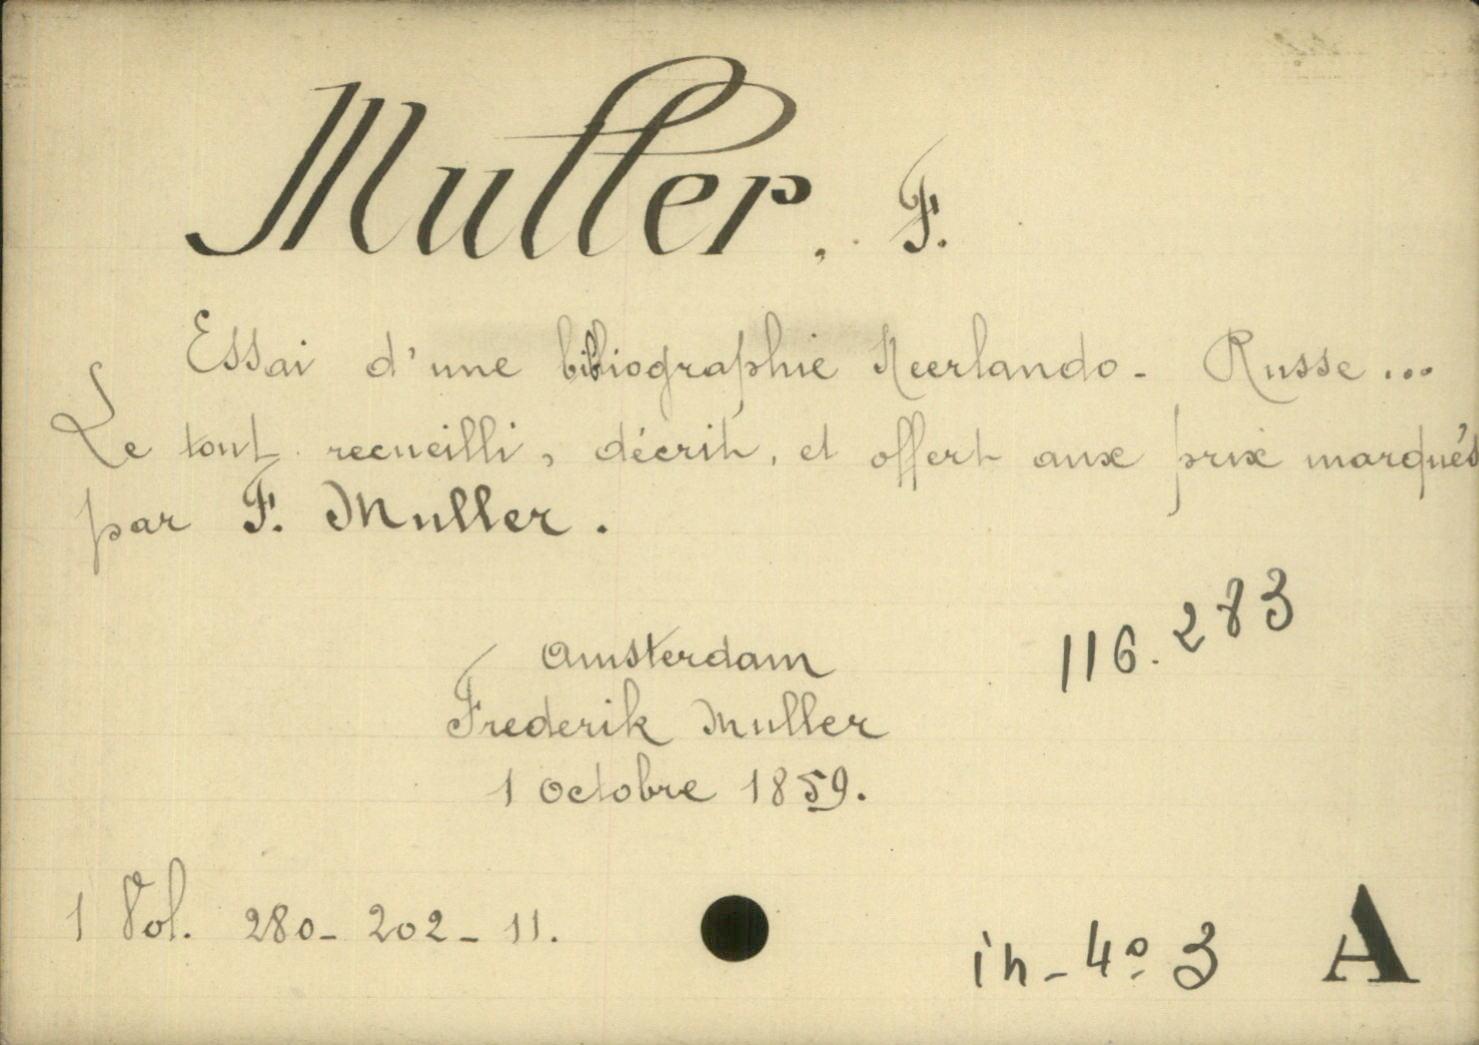 Muller, F.
Essai d'une bibliographie Neerlando-Russe...
Le tout recueilli, décrit, et offert aux prix marqués
par F. Muller.
116.283
Amsterdam
Frederik Muller
1 Octobre 1859.
1 Vol. 280-202-11.
in-4º 3 A